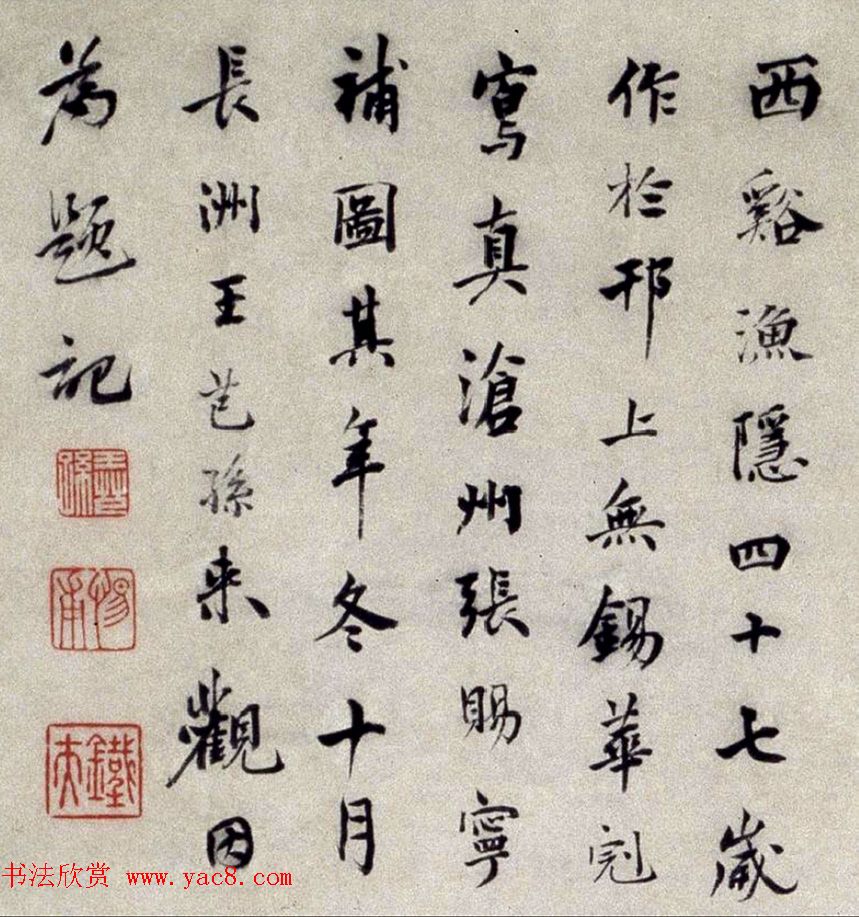 西谿漁隱四十七歲
作於邗上無錫華冠
寫真滄州張賜寧
補圖其年冬十月
長洲王芑孫來觀因
為題記
鐵夫
书法欣赏 www.yac8.com